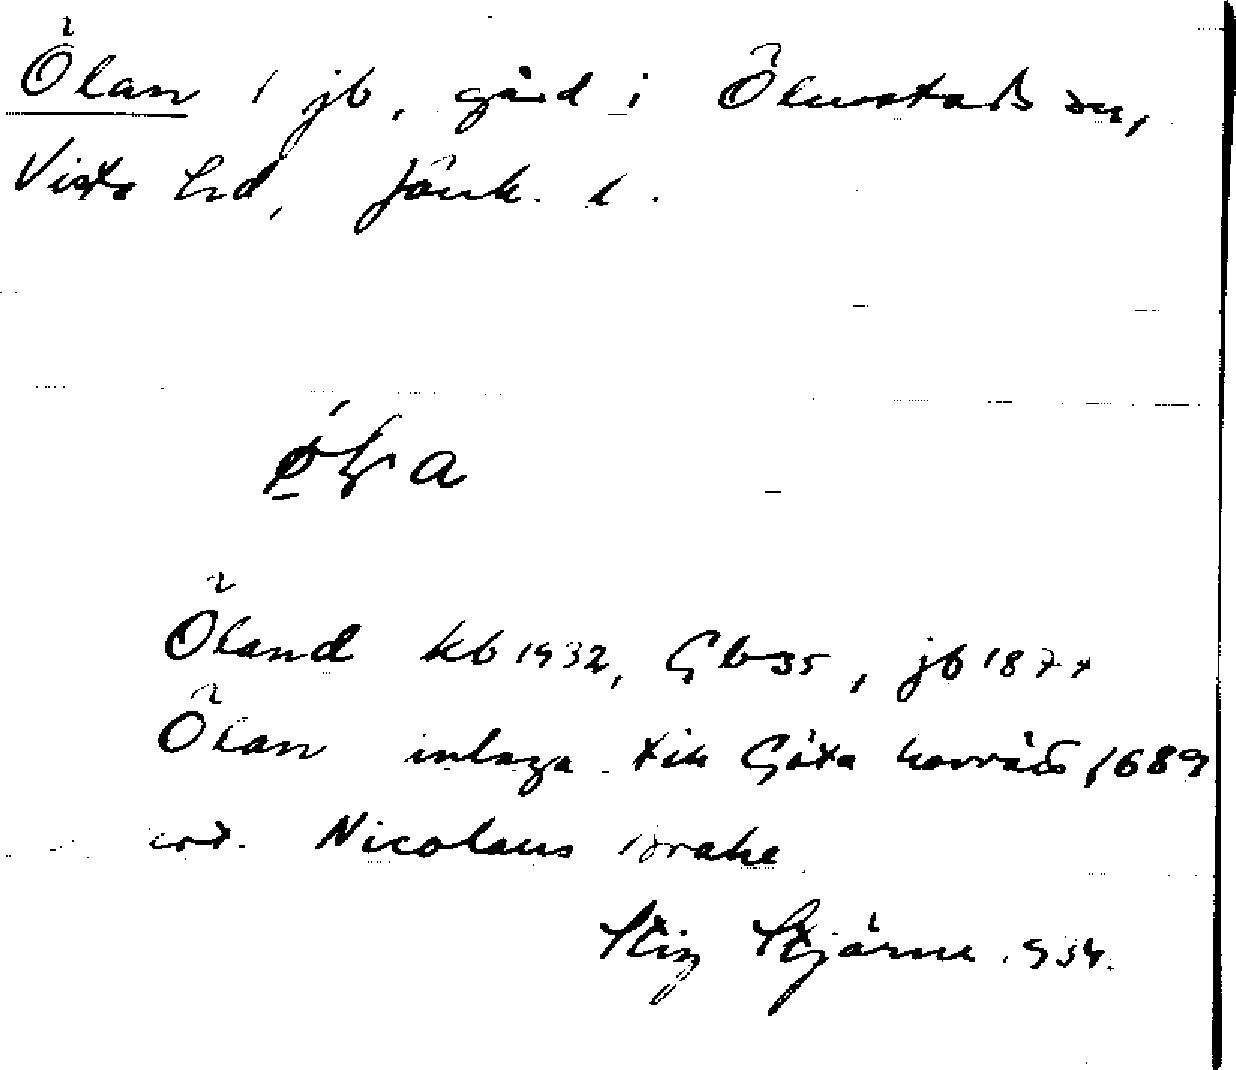 Ölan i jb, gård i Ölmstads sn,
Vista hd, Jönk. l.
Öland kb 1932, Gb 35, jb 187
Ölan inlaga till Göta hovrätt 1689
Nicolaus Brahe
Stig Stjärne 1934.